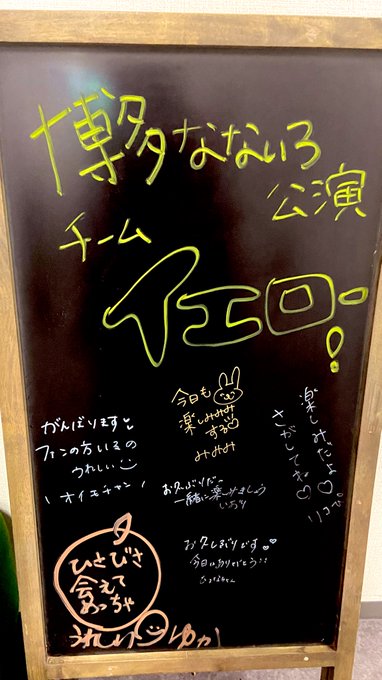 博多なないろ
公演
チーム
イエロー!
今日も
楽しみみみ
する
みみみ
がんばります
ファンの方いるの
うれしい
オイモチャン
楽しみだよ♡
さがしてね♡
りこぴ
お久しぶりだ〜
一緒に楽しみましょう
いおり
ひさびさ
会えて
めっちゃ
うれしい ゆか
お久しぶりです
今日はありがとう